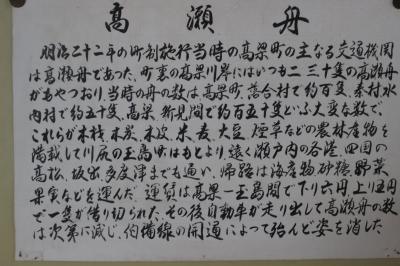 高瀬舟
明治二十二年の町制施行当時の高梁町の主なる交通機関
は高瀬舟であった、町裏の高梁川岸にはいつも二、三十隻の高瀬舟
があやつおり、当時の舟の数は高梁町、落合村で約百隻、秦村水
内村で約五十隻、高梁、新見間で約百五十隻といふ大変な数で、
これらが木材、木炭、米、麦、大豆、煙草などの農林産物を
満載して川尻の玉島県はもとより、遠く瀬戸内の各港、四国の
高松、坂出、多度津までも通い、帰路は海産物、砂糖、野菜
果実などを運んだ、運賃は高梁−玉島間で下り六円上り五円
で一隻が借り切られた、その後自動車が走り出して高瀬舟の数
は次第に減じ、伯備線の開通によって殆んど姿を消した